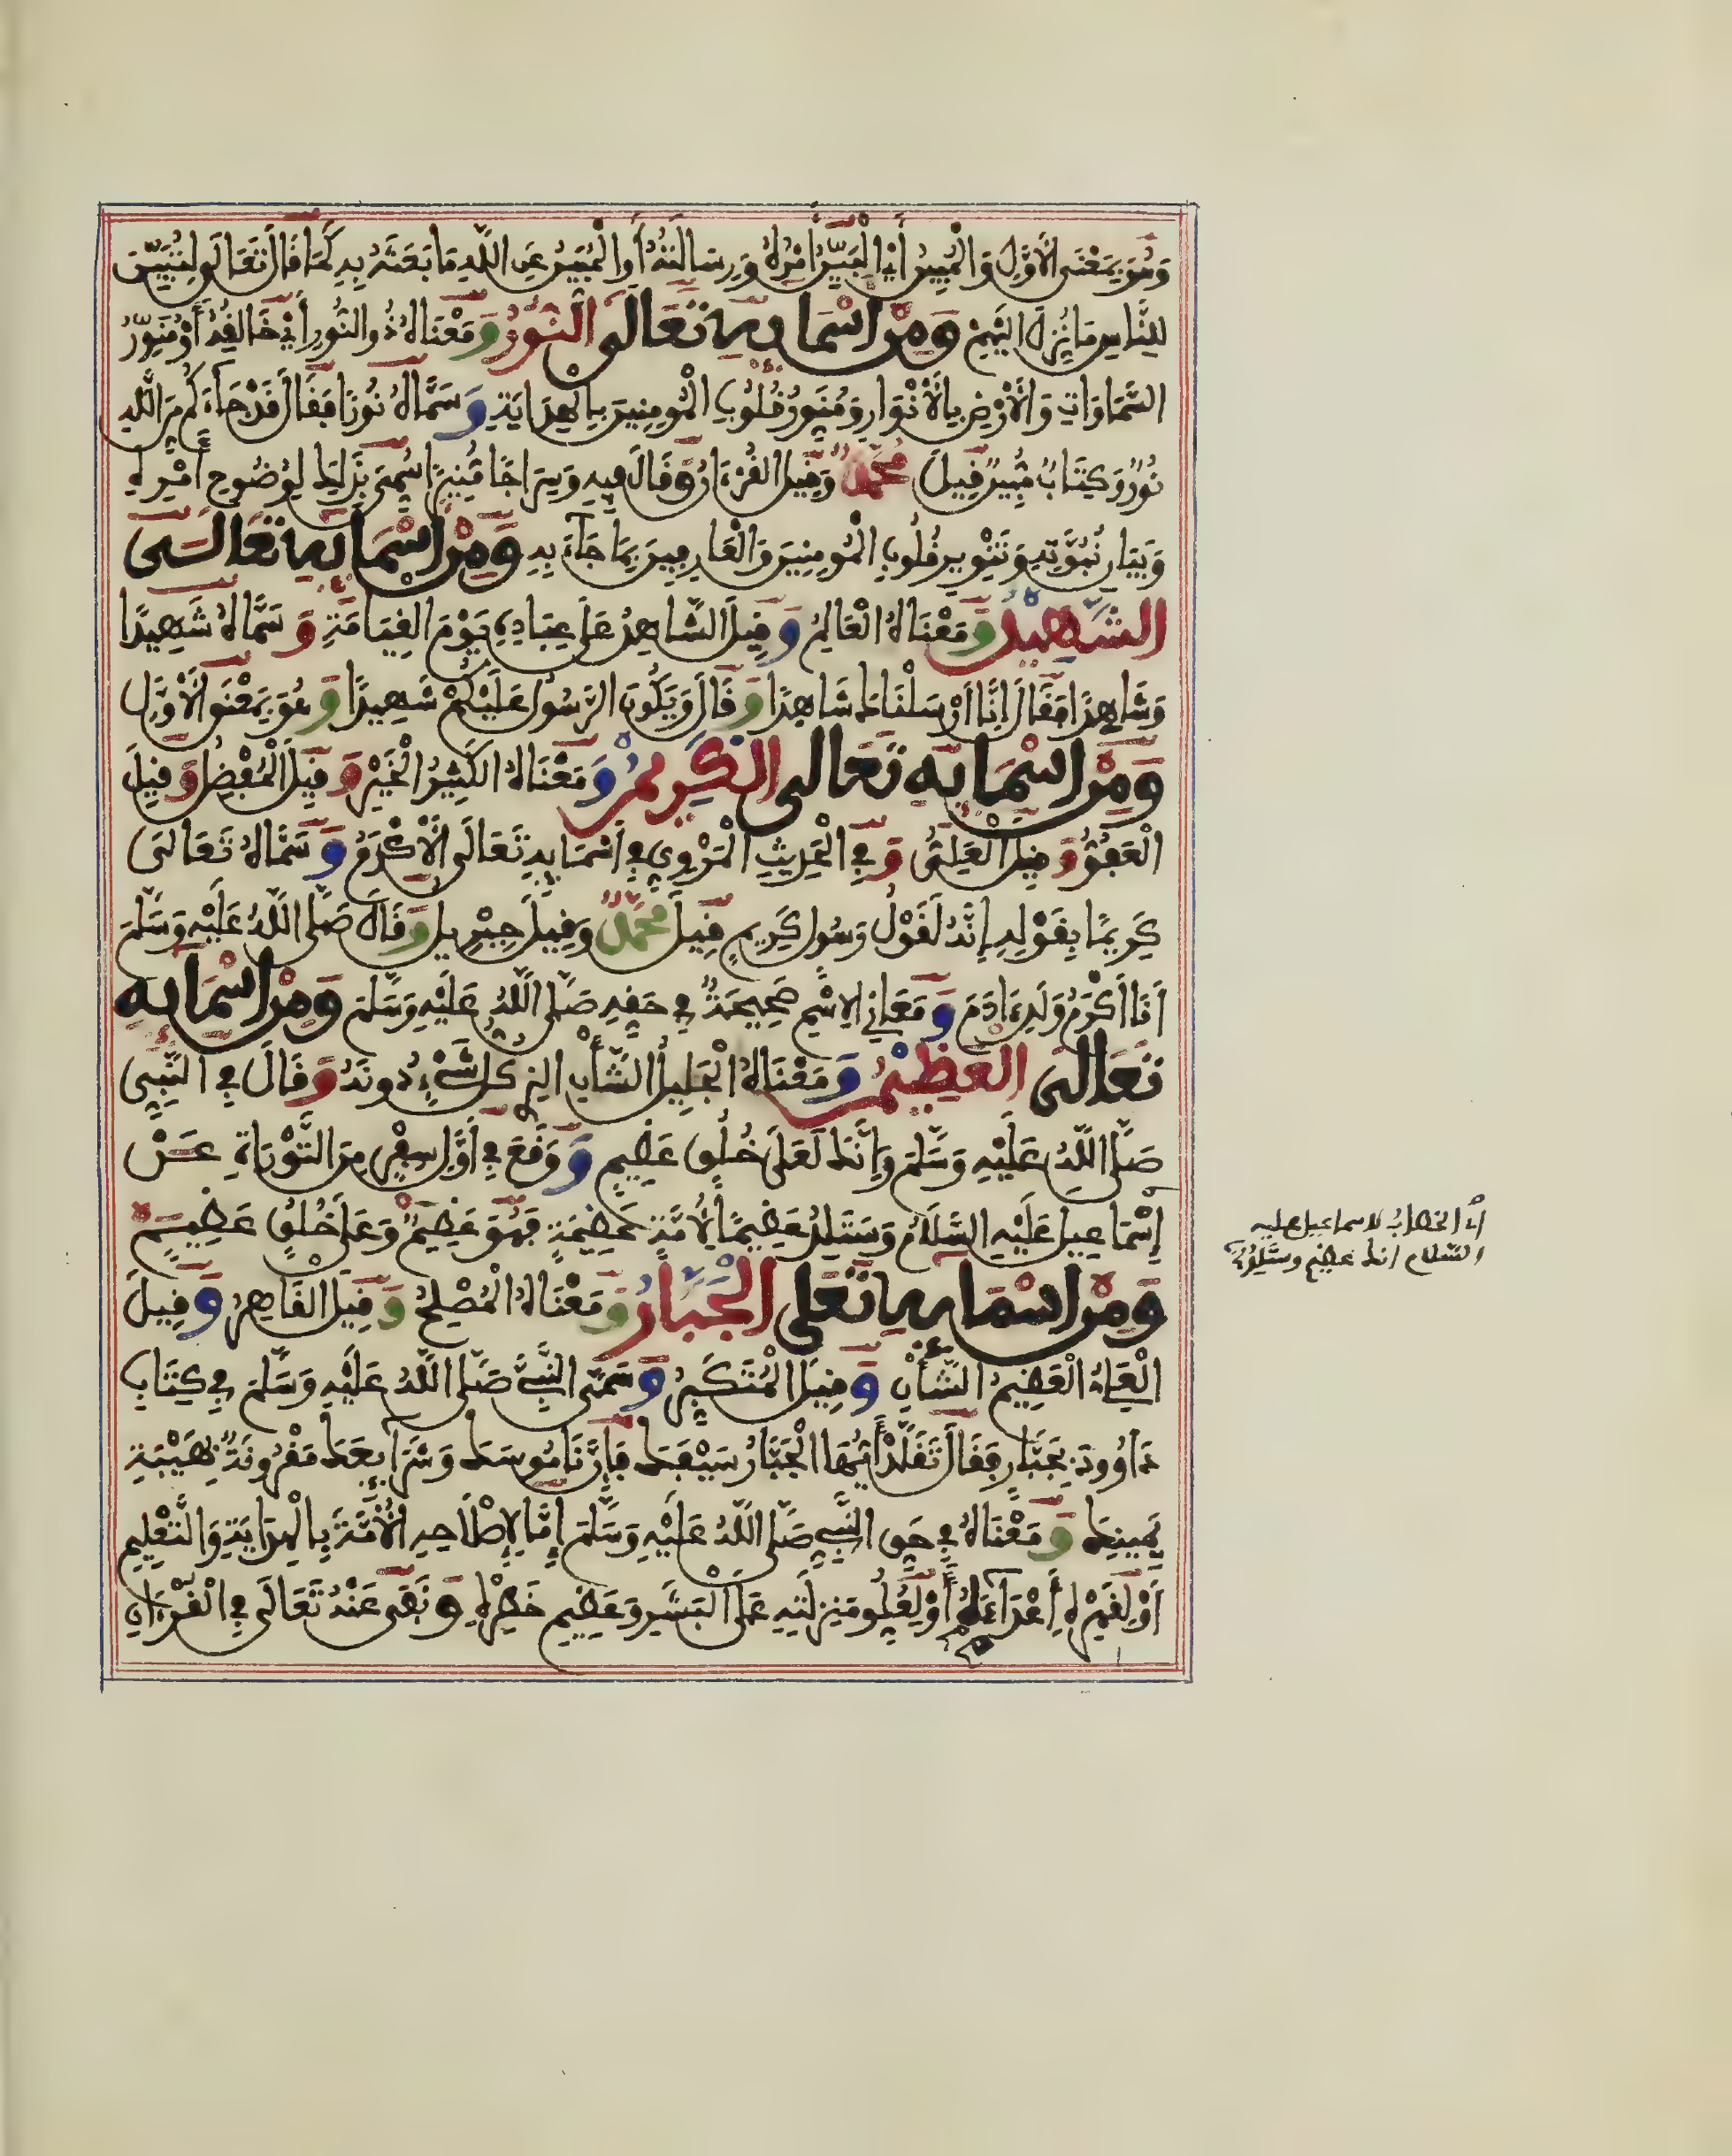 وَهُوَ بِمَعْنَى الْأَوَّلِ وَالْمُبِينُ أَيْضًا الْمُبَيِّنُ أَمْرَهُ وَرِسَالَتَهُ أَوِ الْمُبَيِّنُ عَنِ اللَّهِ مَا بَعَثَهُ بِهِ كَمَا قَالَ تَعَالَى لِتُبَيِّنَ
لِلنَّاسِ مَا نُزِّلَ إِلَيْهِمْ وَمِنْ أَسْمَائِهِ تَعَالَى النُّورُ وَمَعْنَاهُ ذُو النُّورِ أَيْ خَالِقُهُ أَوْ مُنَوِّرُ
السَّمَاوَاتِ وَالْأَرْضِ بِالْأَنْوَارِ وَمُنَوِّرُ قُلُوبِ الْمُومِنِينَ بِالْهِدَايَةِ وَسَمَّاهُ نُورًا فَقَالَ قَدْ جَاءَكُم مِّنَ اللَّهِ
نُورٌ وَكِتَابٌ مُّبِينٌ قِيلَ مُحَمَّدٌ وَقِيلَ الْقُرْءَانُ وَقَالَ فِيهِ وَسِرَاجًا مُّنِيرًا سُمِّيَ بِذَلِكَ لِوُضُوحِ أَمْرِهِ
وَبَيَانِ نُبُوَّتِهِ وَتَنْوِيرِ قُلُوبِ الْمُومِنِينَ وَالْعَارِفِينَ بِمَا جَاءَ بِهِ وَمِنْ أَسْمَائِهِ تَعَالَى
الشَّهِيدُ وَمَعْنَاهُ الْعَالِمُ وَقِيلَ الشَّاهِدُ عَلَى عِبَادِهِ يَوْمَ الْقِيَامَةِ وَسَمَّاهُ شَهِيدًا
وَشَاهِدًا فَقَالَ إِنَّا أَرْسَلْنَاكَ شَاهِدًا وَقَالَ وَيَكُونَ الرَّسُولُ عَلَيْكُمْ شَهِيدًا وَهُوَ بِمَعْنَى الْأَوَّلِ
وَمِنْ أَسْمَائِهِ تَعَالَى الْكَرِيمُ وَمَعْنَاهُ الْكَثِيرُ الْخَيْرِ وَقِيلَ الْمُفْضِلُ وَقِيلَ
الْعَفُوُّ وَقِيلَ الْعَلِيُّ وَفِي الْحَدِيثِ الْمَرْوِيِّ فِي أَسْمَائِهِ تَعَالَى الْأَكْرَمُ وَسَمَّاهُ تَعَالَى
كَرِيمًا بِقَوْلِهِ إِنَّهُ لَقَوْلُ رَسُولٍ كَرِيمٍ قِيلَ مُحَمَّدٌ وَقِيلَ جِبْرِيلُ وَقَالَ صَلَّى اللَّهُ عَلَيْهِ وَسَلَّمَ
أَنَا أَكْرَمُ وَلَدِ ءَادَمَ وَمَعَانِي الِاسْمِ صَحِيحَةٌ فِي حَقِّهِ صَلَّى اللَّهُ عَلَيْهِ وَسَلَّمَ وَمِنْ أَسْمَائِهِ
تَعَالَى الْعَظِيمُ وَمَعْنَاهُ الْجَلِيلُ الشَّأْنِ الَّذِي كُلُّ شَيْءٍ دُونَهُ وَقَالَ فِي النَّبِيِّ
صَلَّى اللَّهُ عَلَيْهِ وَسَلَّمَ وَإِنَّكَ لَعَلَى خُلُقٍ عَظِيمٍ وَوَقَعَ فِي أَوَّلِ سِفْرٍ مِنَ التَّوْرَاةِ عَنْ
إِسْمَاعِيلَ عَلَيْهِ السَّلَامُ وَسَتَلِدُ عَظِيمًا لِأُمَّةٍ عَظِيمَةٍ فَهُوَ عَظِيمٌ وَعَلَى خُلُقٍ عَظِيمٍ
وَمِنْ أَسْمَائِهِ تَعَلَى الْجَبَّارُ وَمَعْنَاهُ الْمُصْلِحُ وَقِيلَ الْقَاهِرُ وَقِيلَ
الْعَلِيُّ الْعَظِيمُ الشَّأْنِ وَقِيلَ الْمُتَكَبِّرُ وَسُمِّيَ النَّبِيُّ صَلَّى اللَّهُ عَلَيْهِ وَسَلَّمَ فِي كِتَابِ
دَاوُودَ بِجَبَّارٍ فَقَالَ تَقَلَّدْ أَيُّهَا الْجَبَّارُ سَيْفَكَ فَإِنَّ نَامُوسَكَ وَشَرَائِعَكَ مَقْرُونَةٌ بِهَيْبَةِ
يَمِينِكَ وَمَعْنَاهُ فِي حَقِّ النَّبِيِّ صَلَّى اللَّهُ عَلَيْهِ وَسَلَّمَ إِمَّا لِإِصْلَاحِهِ الْأُمَّةَ بِالْهِدَايَةِ وَالتَّعْلِيمِ
أَوْ لِقَهْرِهِ أَعْدَاءَهُ أَوْ لِعُلُوِّ مَنْزِلَتِهِ عَلَى الْبَشَرِ وَعَظِيمِ خَطَرِهِ وَنَفَى عَنْهُ تَعَالَى فِي الْقُرْءَانِ
أي الخطاب لاسماعيل عليه
السلام انك عظيم وستلد